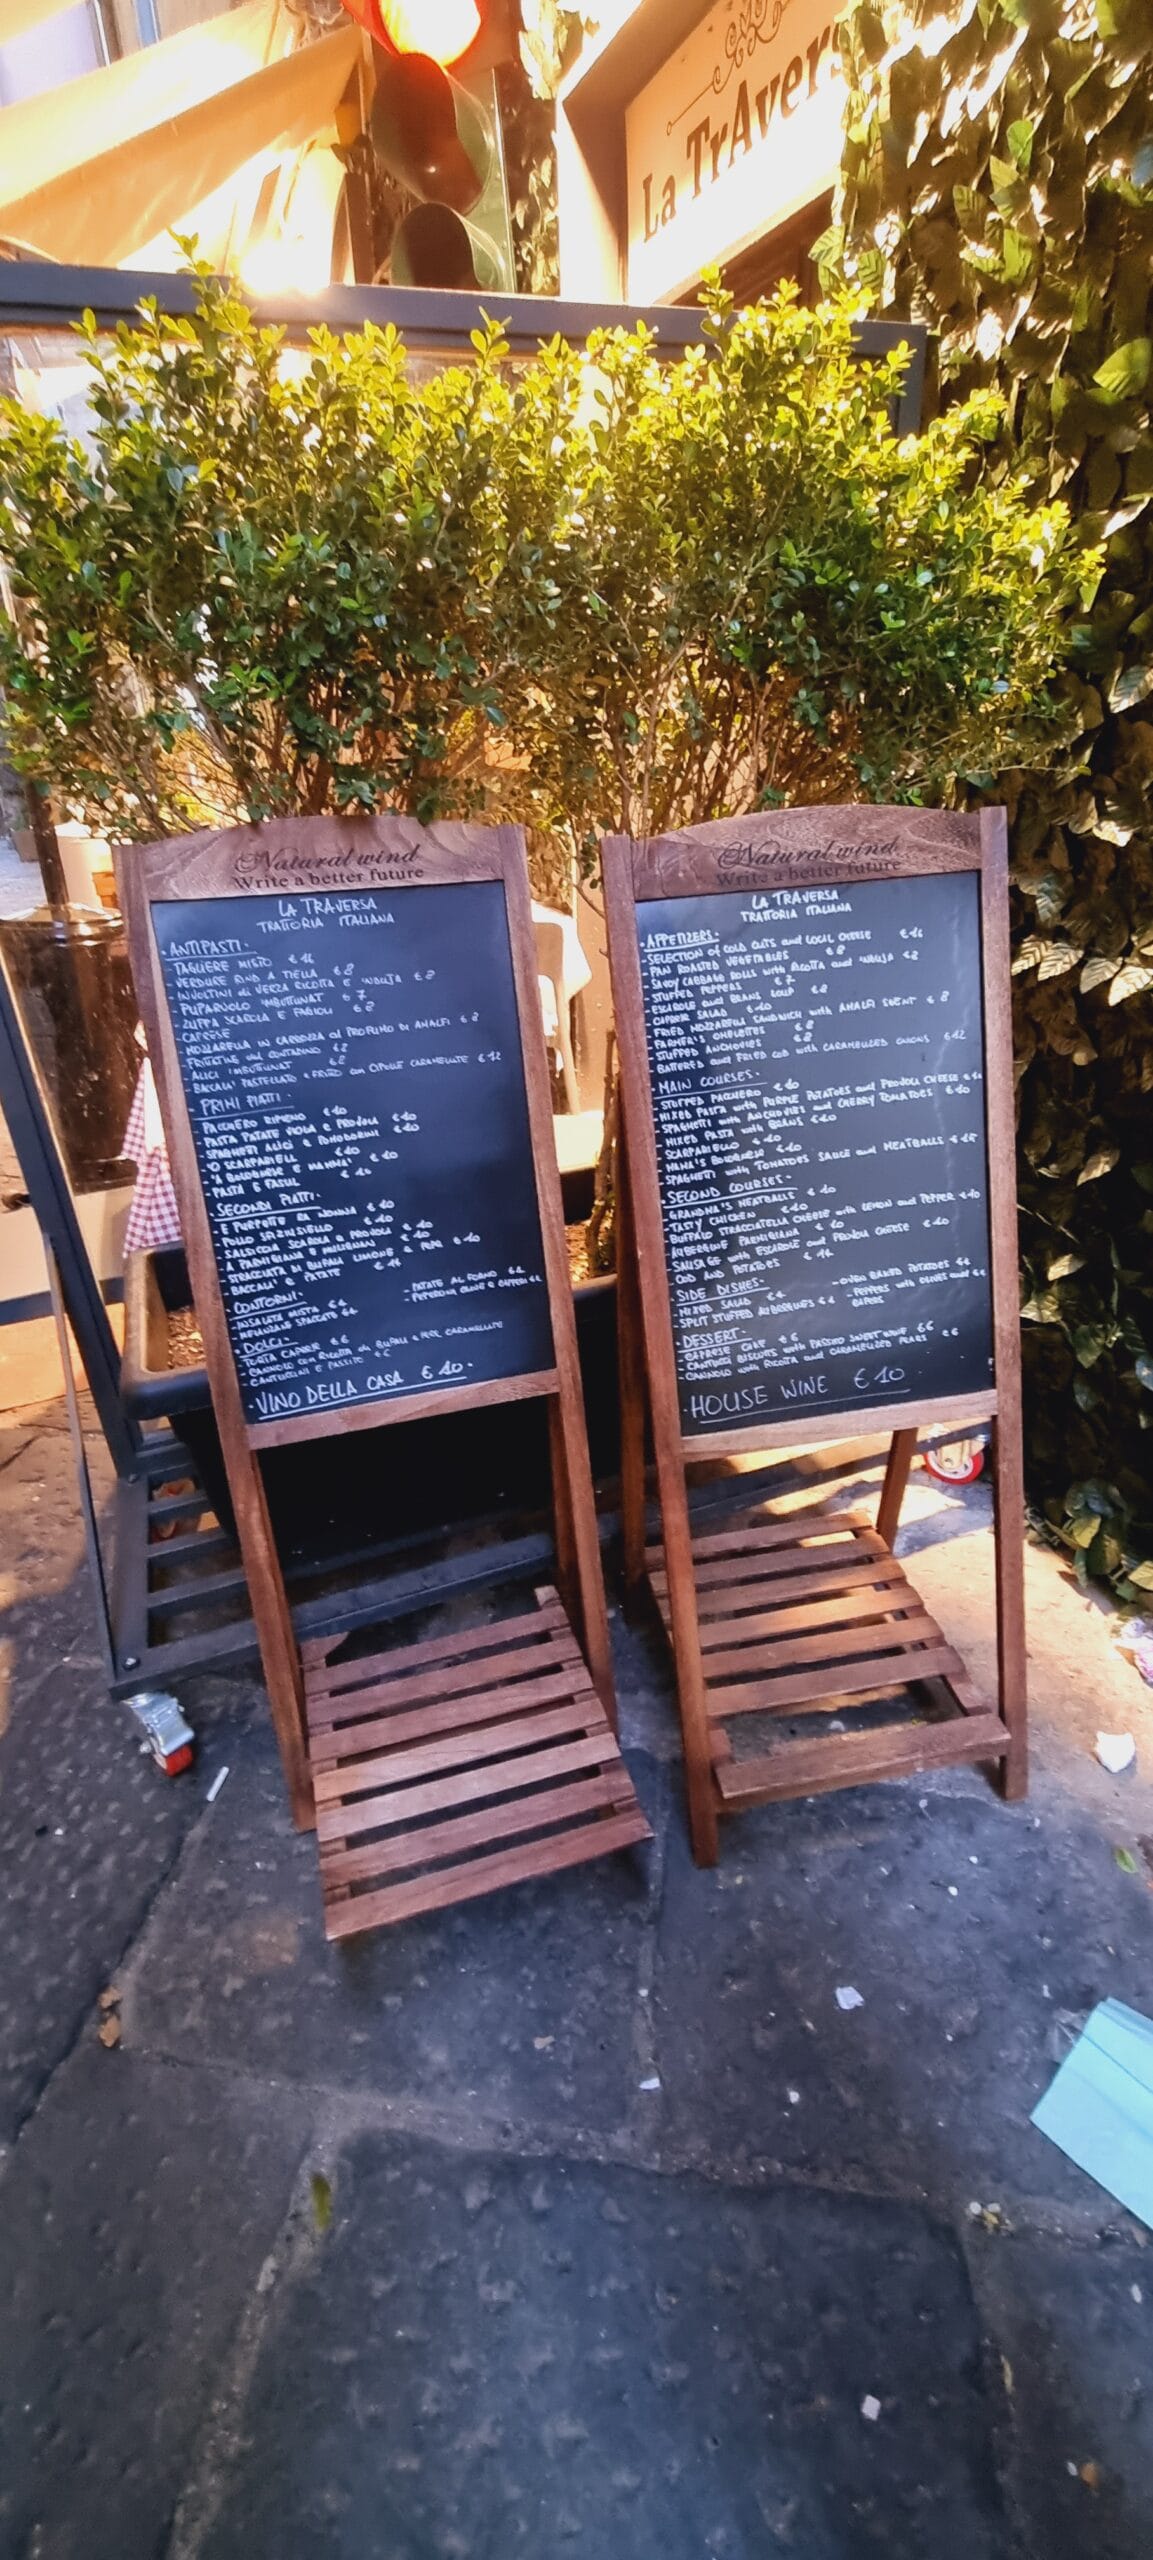 La TrAvers
Natural wind
Write a better future
LA TRAVERSA
TRATTORIA ITALIANA
• ANTIPASTI •
- TAGLIERE MISTO €16
- VERDURE FIND A TIELLA €8
- INVOLTINI di VERZA RICOTTA E NDUJA €8
- PUPARUOLO IMBUTTUNAT €7
- ZUPPA SCAROLA E FAGIOLI €8
- CAPRESE
- MOZZARELLA IN CARROZZA al PROFUMO DI AMALFI €8
- FRITTATINE del CONTADINO €8
- ALICI IMBUTTUNAT €8
- BACCALA' PASTELLATO e FRITTO con CIPOLLE CARAMELLATE €12
- PRIMI PIATTI •
- PACCHERO RIPIENO €10
- PASTA PATATE VIOLA E PROVOLA €10
- SPAGHETTI ALICI E POMODORINI €10
- 'O SCARPARIELL €10
- 'A BOLOGNESE E MAMMA' €10
- PASTA E FASUL €10
• SECONDI PIATTI •
- E PURPETTE RA NONNA €10
- POLLO SFIZIUSIELLO €10
- SALSICCIA SCAROLA E PROVOLA €10
- A PARMIGIANA E MULIGNANA €10
- STRACCIATA DI BUFALA LIMONE E PEPE €10
- BACCALA' E PATATE €14
• CONTORNI •
- INSALATA MISTA €4
- PATATE AL FORNO €4
- MELANZANE SPACCATE €4
- PEPERONI OLIVE E CAPPERI €4
• DOLCI •
- TORTA CAPRESE €6
- CANNOLO con RICOTTA di BUFALA E PERE CARAMELLATE
- CANTUCCINI E PASSITO €6
• VINO DELLA CASA €10 •
Natural wind
Write a better future
LA TRAVERSA
TRATTORIA ITALIANA
• APPETIZERS •
- SELECTION of COLD CUTS and LOCAL CHEESE €16
- PAN ROASTED VEGETABLES €8
- SAVOY CABBAGE ROLLS with RICOTTA and NDUJA €8
- STUFFED PEPPERS €7
- ESCAROLE and BEANS SOUP €8
- CAPRESE SALAD €10
- FRIED MOZZARELLA SANDWICH with AMALFI SCENT €8
- FARMER'S OMELETTES €8
- STUFFED ANCHOVIES €8
- BATTERED and FRIED COD with CARAMELIZED ONIONS €12
- MAIN COURSES •
- STUFFED PACCHERO €10
- MIXED PASTA with PURPLE POTATOES and PROVOLA CHEESE €10
- SPAGHETTI with ANCHOVIES and CHERRY TOMATOES €10
- MIXED PASTA with BEANS €10
- SCARPARIELLO €10
- NANA'S BOLOGNESE €10
- SPAGHETTI with TOMATOES SAUCE and MEATBALLS €15
• SECOND COURSES •
- GRANDMA'S MEATBALLS €10
- TASTY CHICKEN €10
- BUFFALO STRACCIATELLA CHEESE with LEMON and PEPPER €10
- AUBERGINE PARMIGIANA €10
- SAUSAGE with ESCAROLE and PROVOLA CHEESE €10
- COD AND POTATOES €14
• SIDE DISHES •
- MIXED SALAD €4
- OVEN BAKED POTATOES €4
- SPLIT STUFFED AUBERGINES €4
- PEPPERS with OLIVES and €4
CAPERS
• DESSERT •
- CAPRESE CAKE €6
- CANTUCCI BISCUITS with PASSITO SWEET WINE €6
- CANNOLO with RICOTTA and CARAMELIZED PEARS €6
• HOUSE WINE €10 •